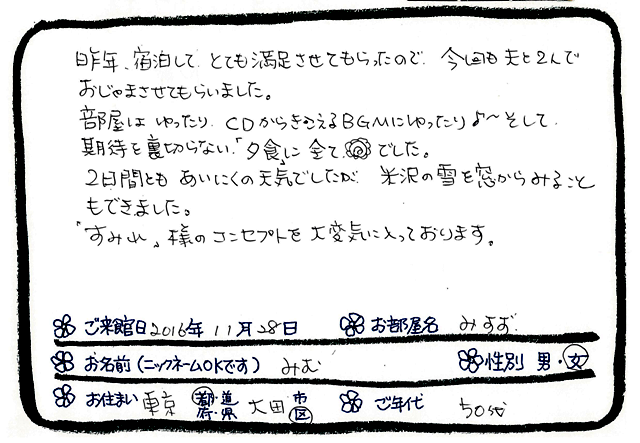 昨年、宿泊して とても満足させてもらったので、今回も夫と2人で
おじゃまさせてもらいました。
部屋は ゆったり、CDからきこえるBGMにゆったり♪〜そして、
期待を裏切らない、「夕食」に 全て でした。
2日間とも あいにくの天気でしたが、米沢の雪を窓からみること
もできました。
「すみれ」様のコンセプトを大変気に入っております。
ご来館日 2016年 11月28日 お部屋名 みすず
お名前(ニックネームOKです) みむ 性別 男・女
お住まい 東京 都道府県 大田 市区 ご年代 50代